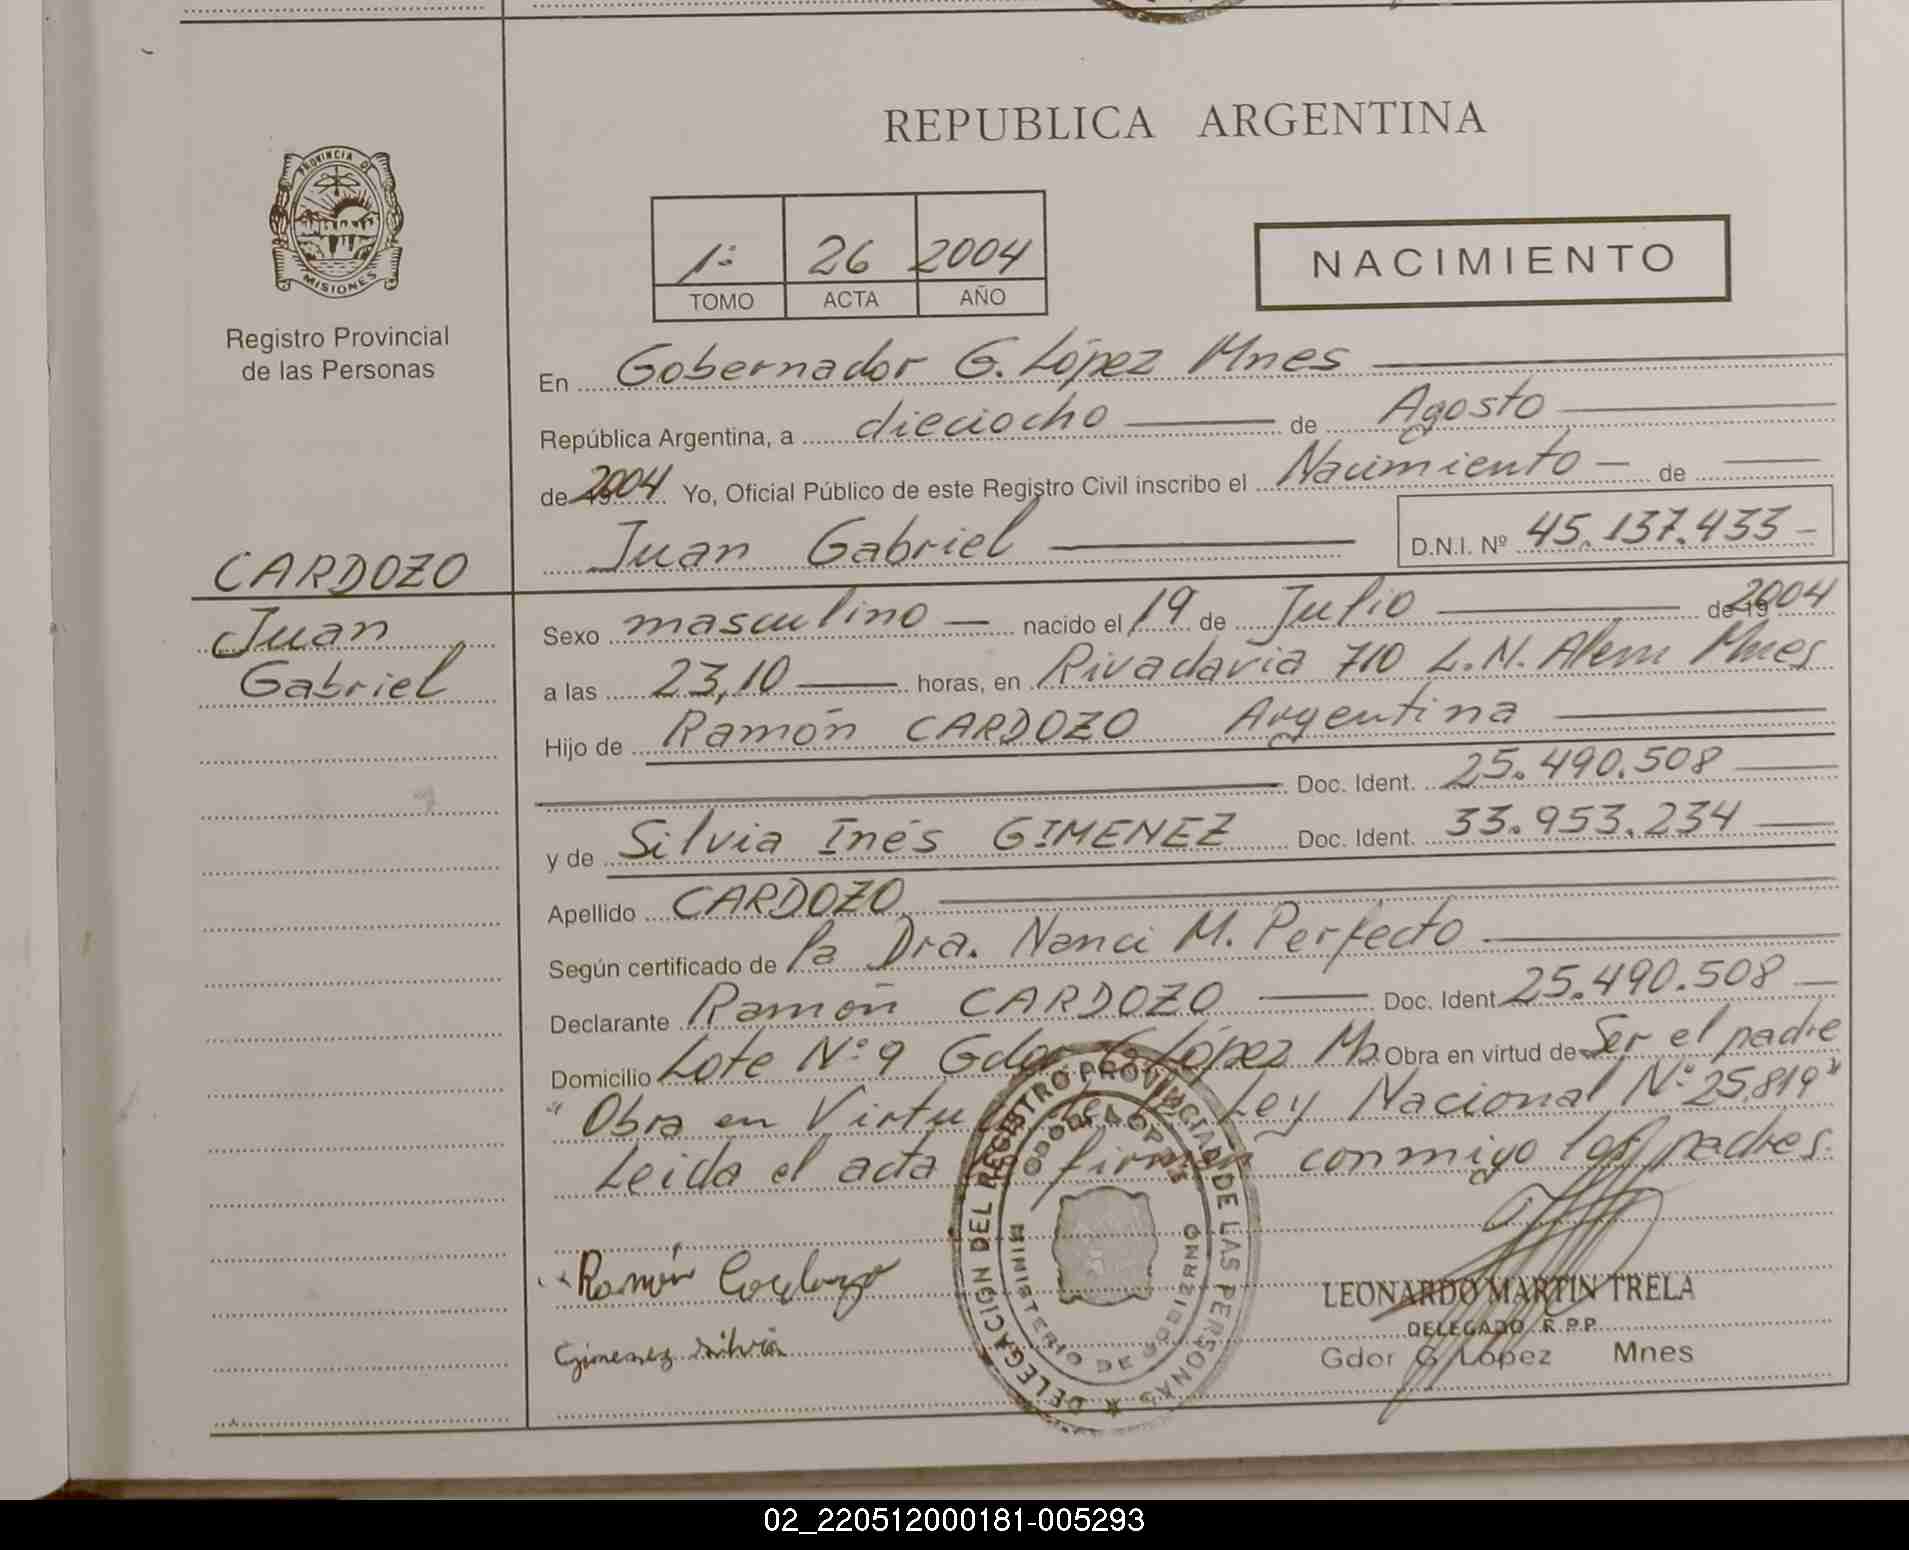 PROVINCIA DE
MISIONES
Registro Provincial
de las Personas
CARDOZO
Juan
Gabriel
REPUBLICA ARGENTINA
1º 26 2004
TOMO ACTA AÑO
NACIMIENTO
En Gobernador G. López Mnes
República Argentina, a dieciocho de Agosto
de 2004 Yo, Oficial Público de este Registro Civil inscribo el Nacimiento de
Juan Gabriel D.N.I. Nº 45.137.433
Sexo masculino nacido el 19 de Julio de 19 2004
a las 23,10 horas, en Rivadavia 710 L.N. Alem Mnes
Hijo de Ramón CARDOZO Argentina
Doc. Ident. 25.490.508
y de Silvia Inés GIMENEZ Doc. Ident. 33.953.234
Apellido CARDOZO
Según certificado de la Dra. Nanci M. Perfecto
Declarante Ramón CARDOZO Doc. Ident 25.490.508
Domicilio Lote Nº 9 Gdor G. López M. Obra en virtud de Ser el padre
"Obra en Virtud de la Ley Nacional Nº 25.819"
Leida el acta firman conmigo los padres.
DELEGACIÓN DEL REGISTRO PROVINCIAL DE LAS PERSONAS
MINISTERIO DE GOBIERNO
Ramón Cardozo
Gimenez Silvia
LEONARDO MARTIN TRELA
DELEGADO R.P.P.
Gdor G López Mnes
02_220512000181-005293